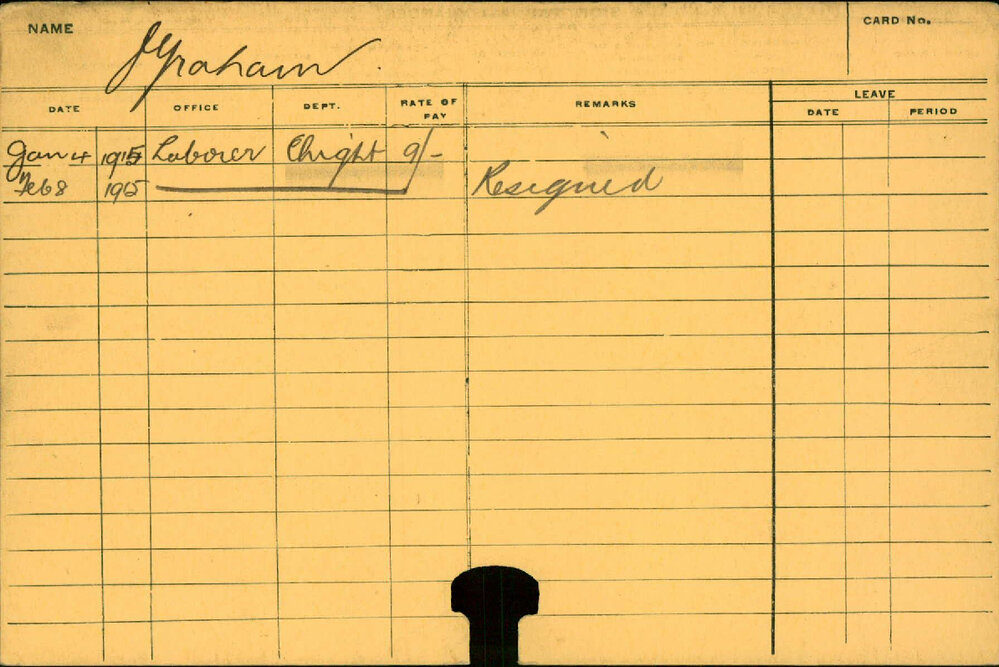 NAME J Graham. CARD No.
LEAVE
DATE OFFICE DEPT. RATE OF PAY REMARKS DATE PERIOD
Jan 4 1915 Laborer Elright 9/-
Feb 8 1915 Resigned